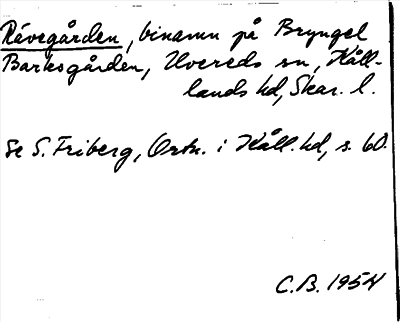 Rävegården, binamn på Bryngel
Barksgården, Uvereds sn, Kåll-
lands hd, Skar. l.
Se S. Friberg, Ortn. i Kåll. hd, s. 60.
C.B. 1954